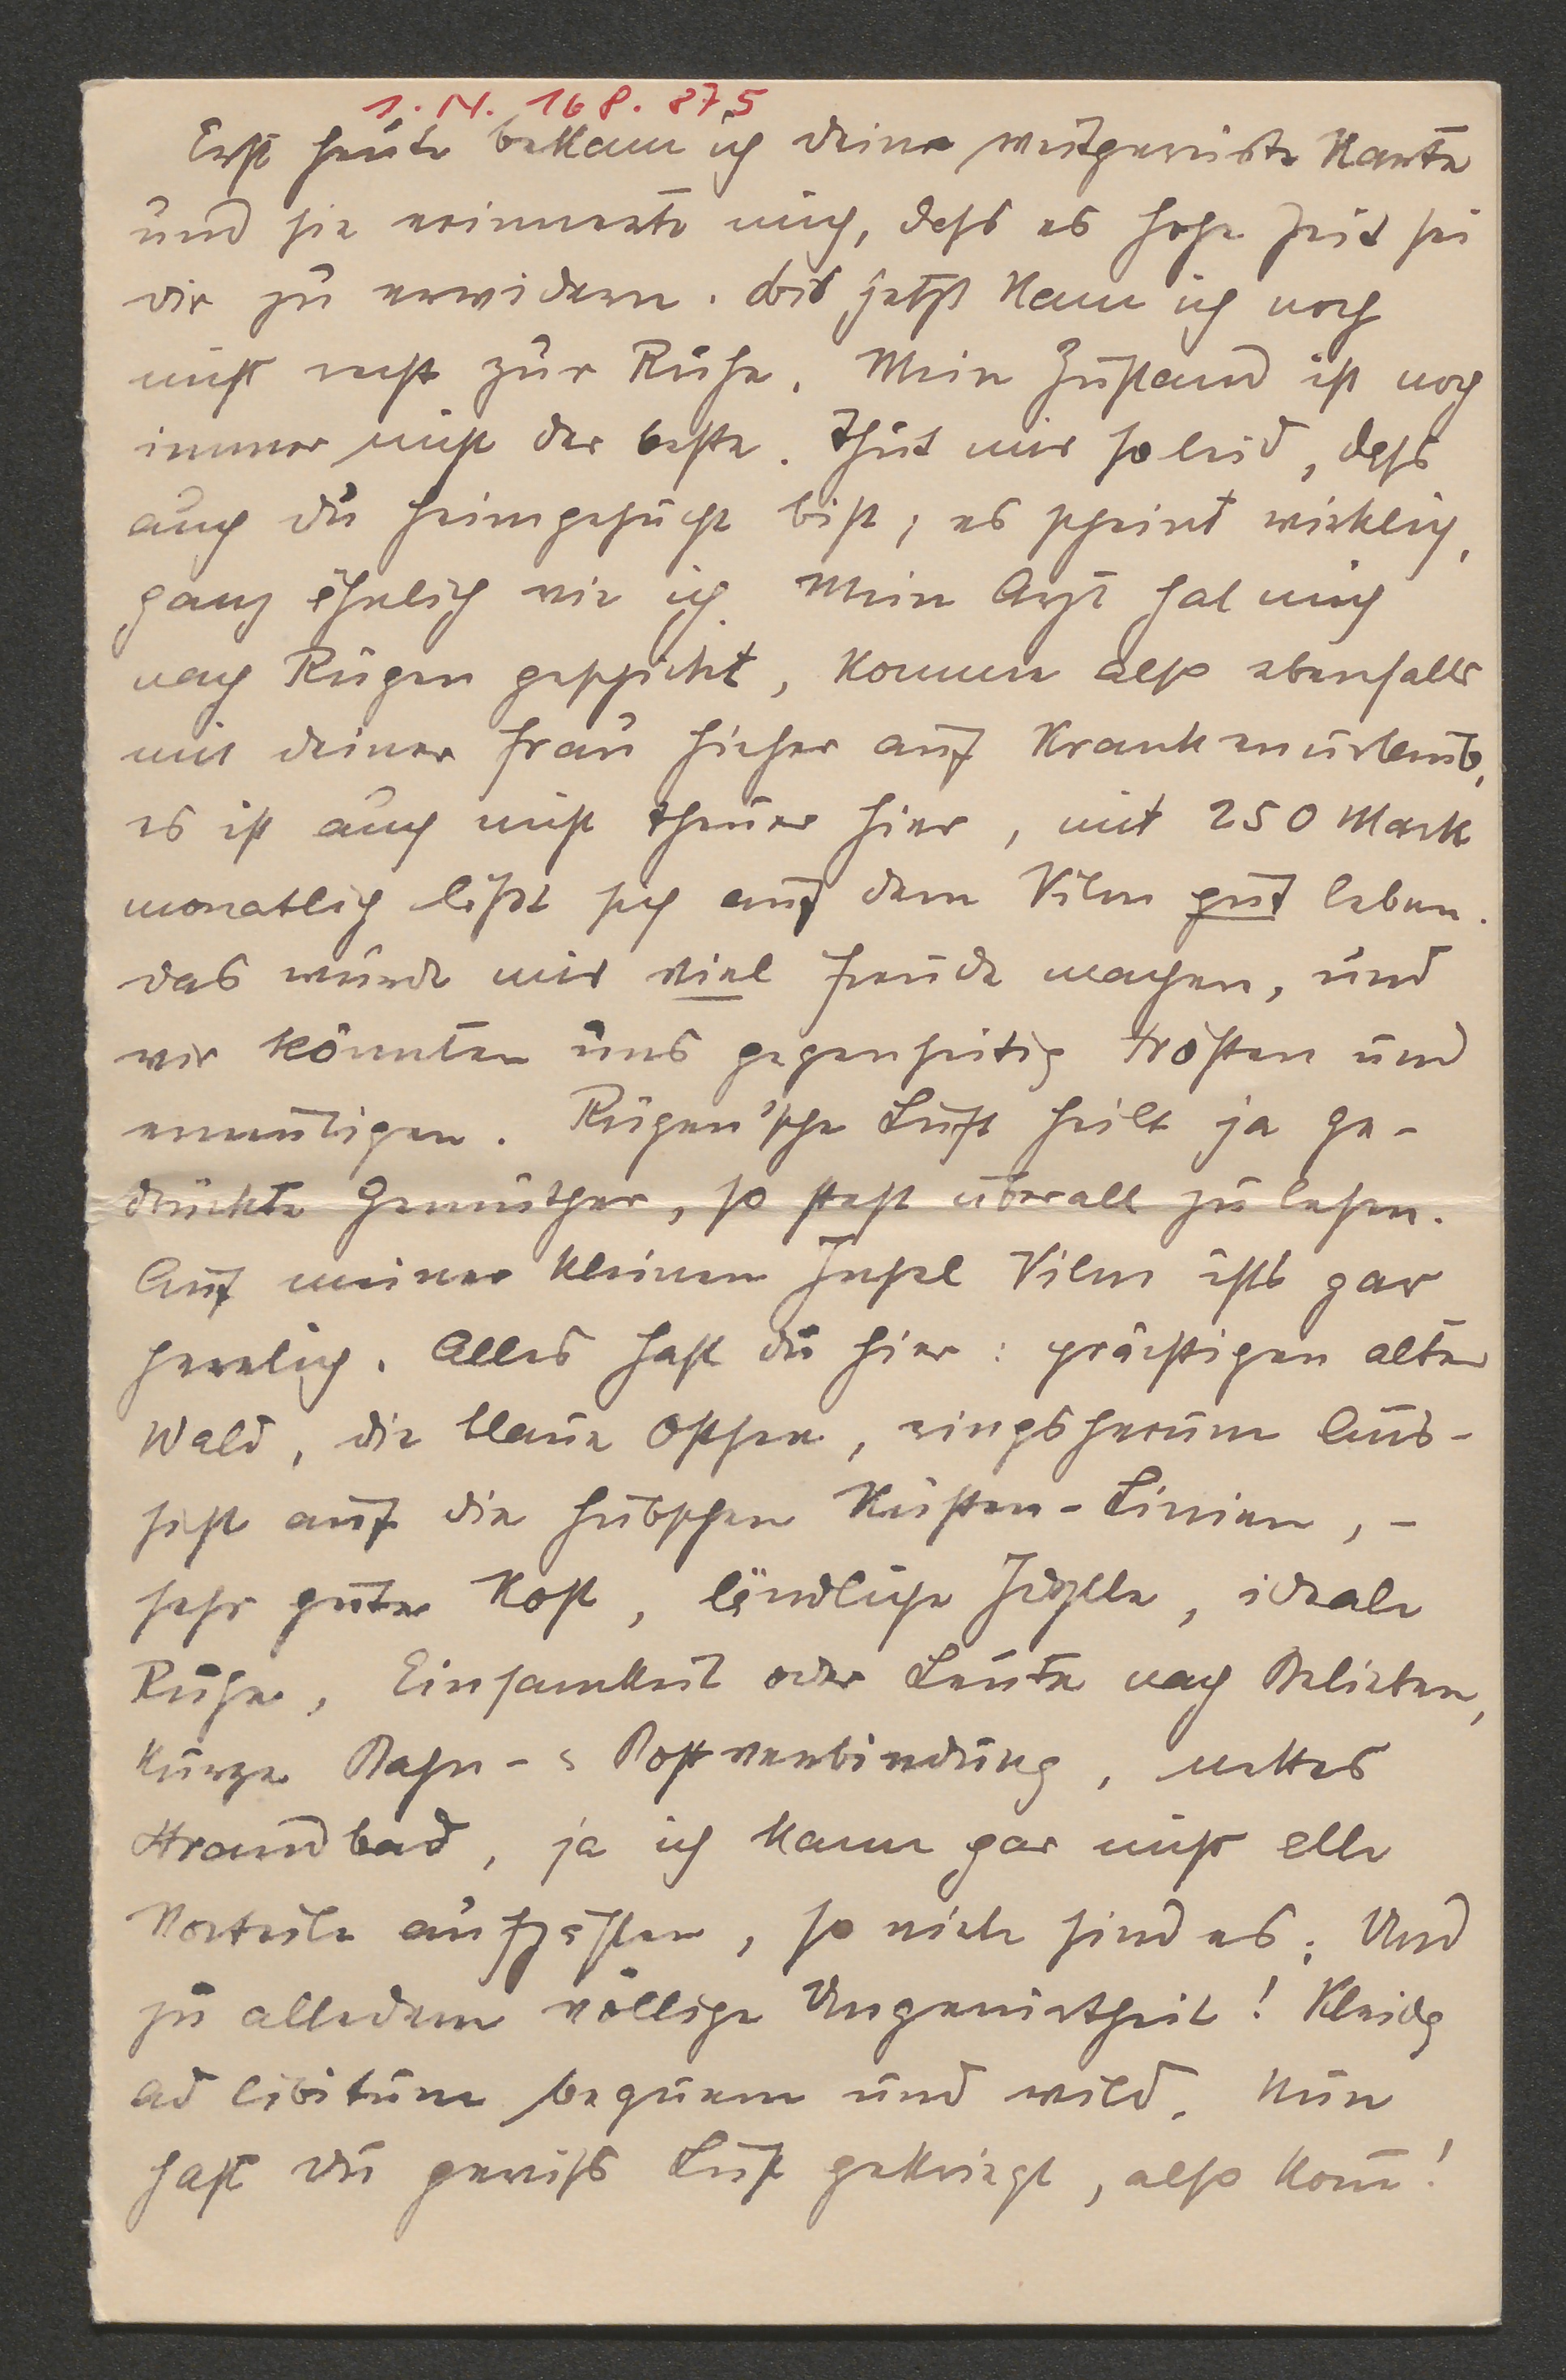 I. N. 168.875
Erst heute bekam ich deine weitgereiste Karte
und sie erinnerte mich, dass es hohe Zeit sei
dir zu erwidern. Bis jetzt kam ich noch
nicht recht zur Ruhe. Mein Zustand ist noch
immer nicht der beste. Thut mir so leid, dass
auch du heimgesucht bist; es scheint wirklich,
ganz ähnlich wie ich. Mein Arzt hat mich
nach Rügen geschickt, komme also ebenfalls
mit deiner Frau hieher auf Krankenurlaub,
es ist auch nicht theuer hier, mit 250 Mark
monatlich läßt sich auf dem Vilm gut leben.
Das würde mir viel Freude machen, und
wir könnten uns gegenseitig trösten und
ermutigen. Rügen'sche Luft heilt ja ge-
drückte Gemüther, so steht überall zu lesen.
Auf meiner kleinen Insel Vilm ists gar
herrlich. Alles hast du hier: prächtigen alten
Wald, die blaue Ostsee, ringsherum Aus-
sicht auf die hübschen Küsten-Linien, -
sehr gute Kost, ländliche Idylle, ideale
Ruhe, Einsamkeit oder Leute nach Belieben,
kurze Bahn- & Postverbindung, nettes
Strandbad, ja ich kann gar nicht alle
Vorteile aufzählen, so viele sind es. Und
zu alledem völlige Ungeniertheit! Kleidg
ad libitum bequem und wild. Nun
hast du gewiss Lust gekriegt, also kom̅!